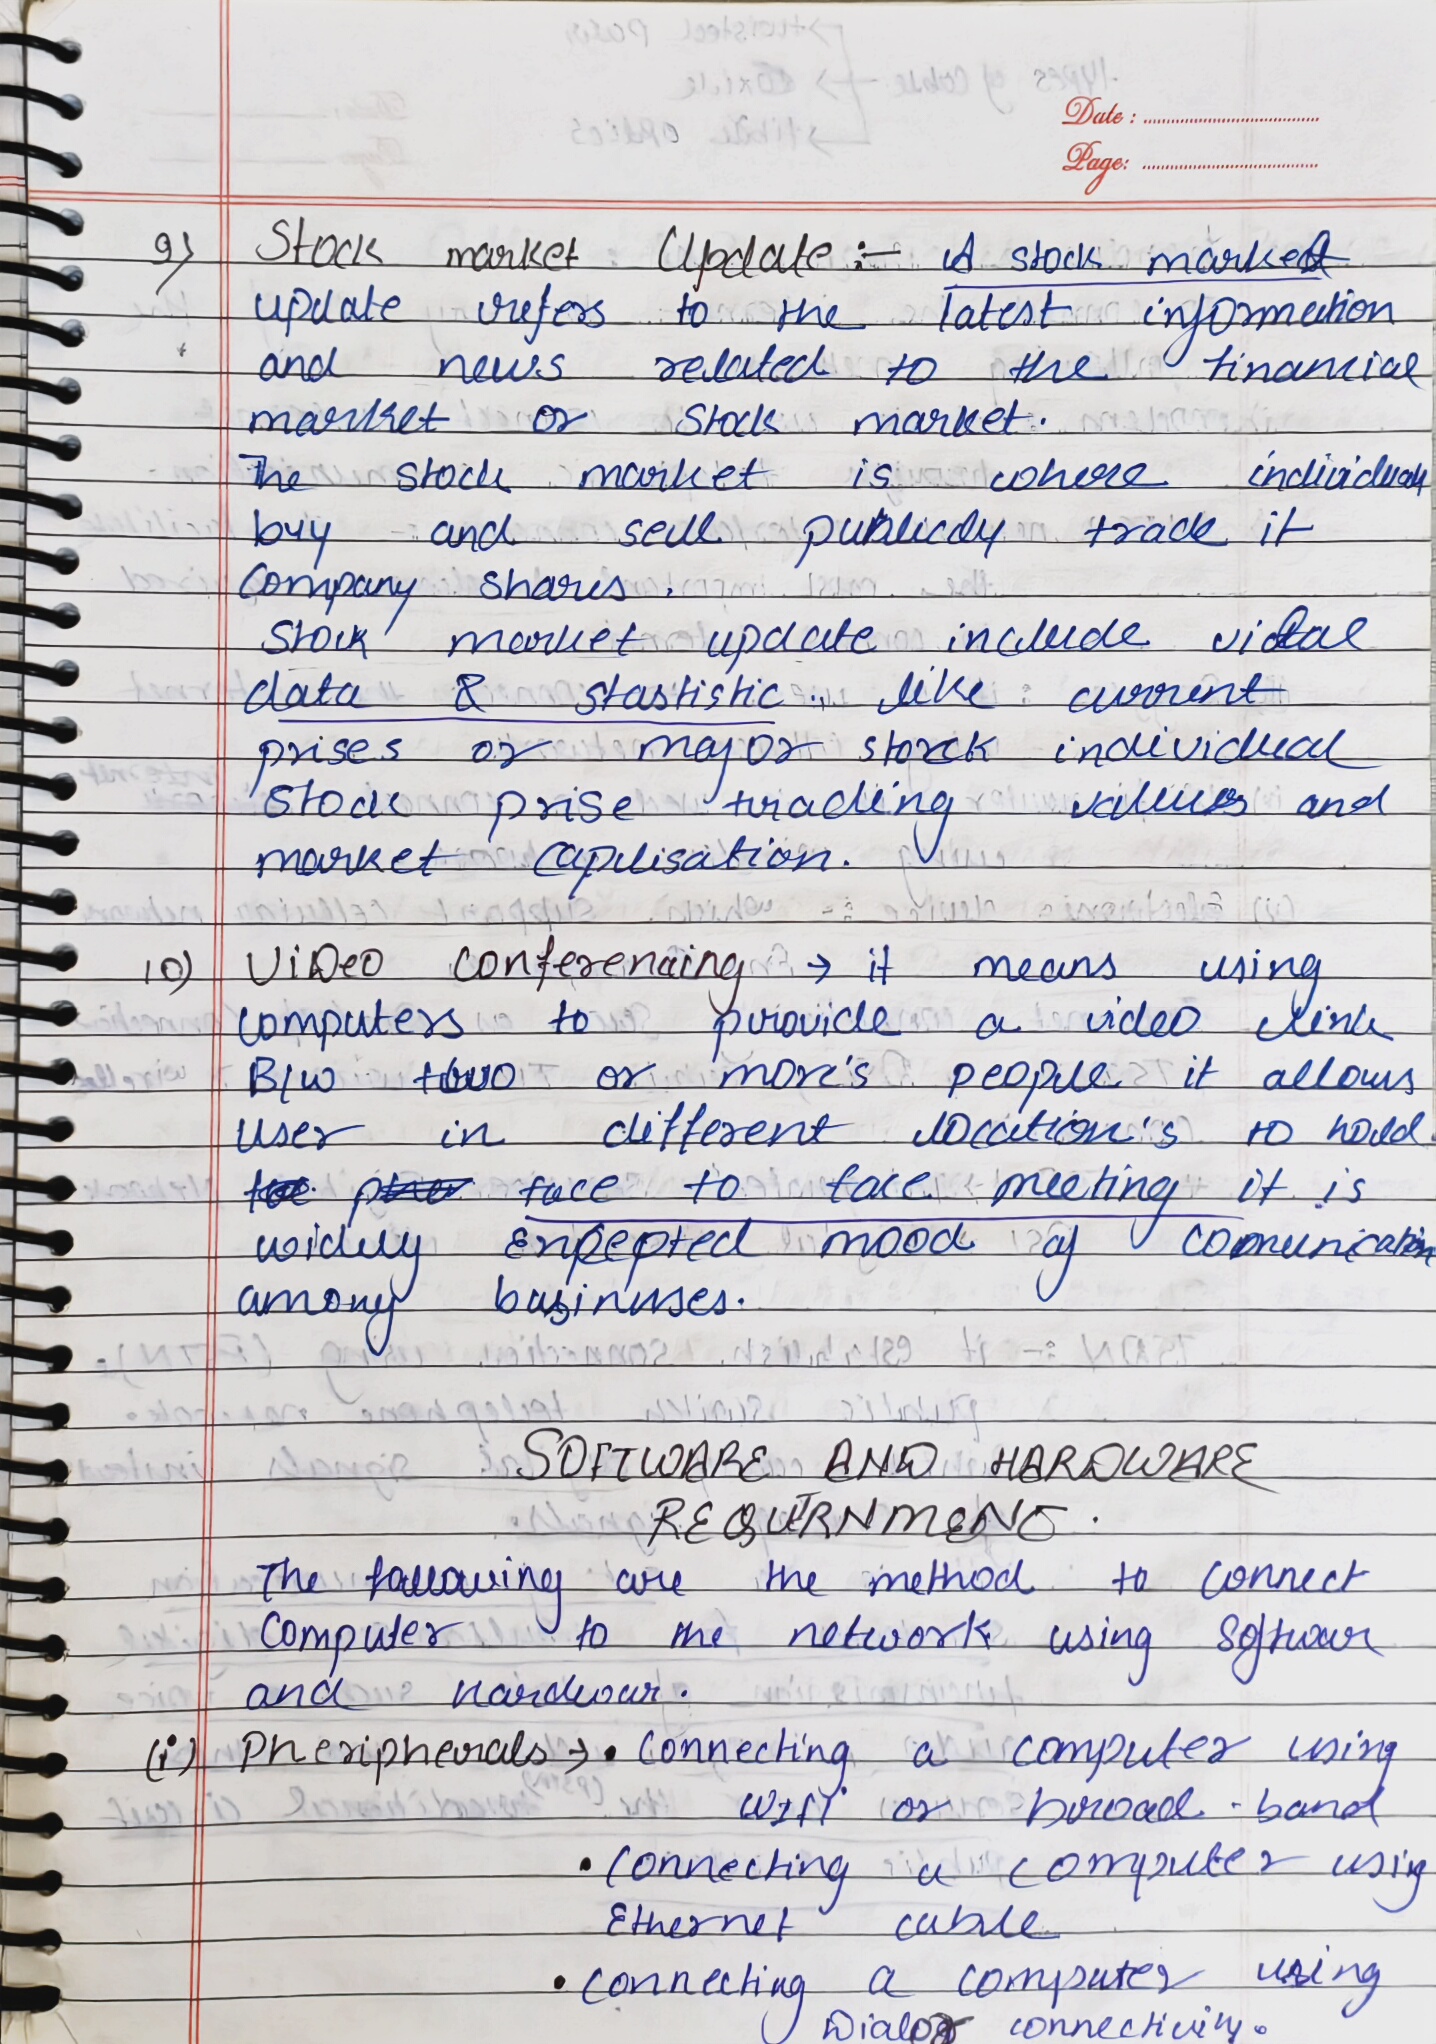 Date :
Page:
9) Stock market Update :- A stock market
update refers to the latest information
and news related to the financial
market or stock market.
The stock market is where individuals
buy and sell publically trade it
company shares.
Stock market update include vital
data & stastistic. like current
prises or major storck individual
stock prise trading values and
market capilisation.
10) VIDEO conferencing → it means using
computers to provide a video link
B/w two or more's people it allows
user in different location's to hold
face to face meeting it is
widely Expepted mood of comunication
among businuses.
SOFTWARE AND HARDWARE
REQUIRNMENT.
The following are the method to connect
Computer to the network using Softwar
and hardwar.
(i) Pheripherals → • Connecting a computer using
WIFI or broad-band
• Connecting a computer using
Ethernet cable
• Connecting a computer using
Dialog connectivity.